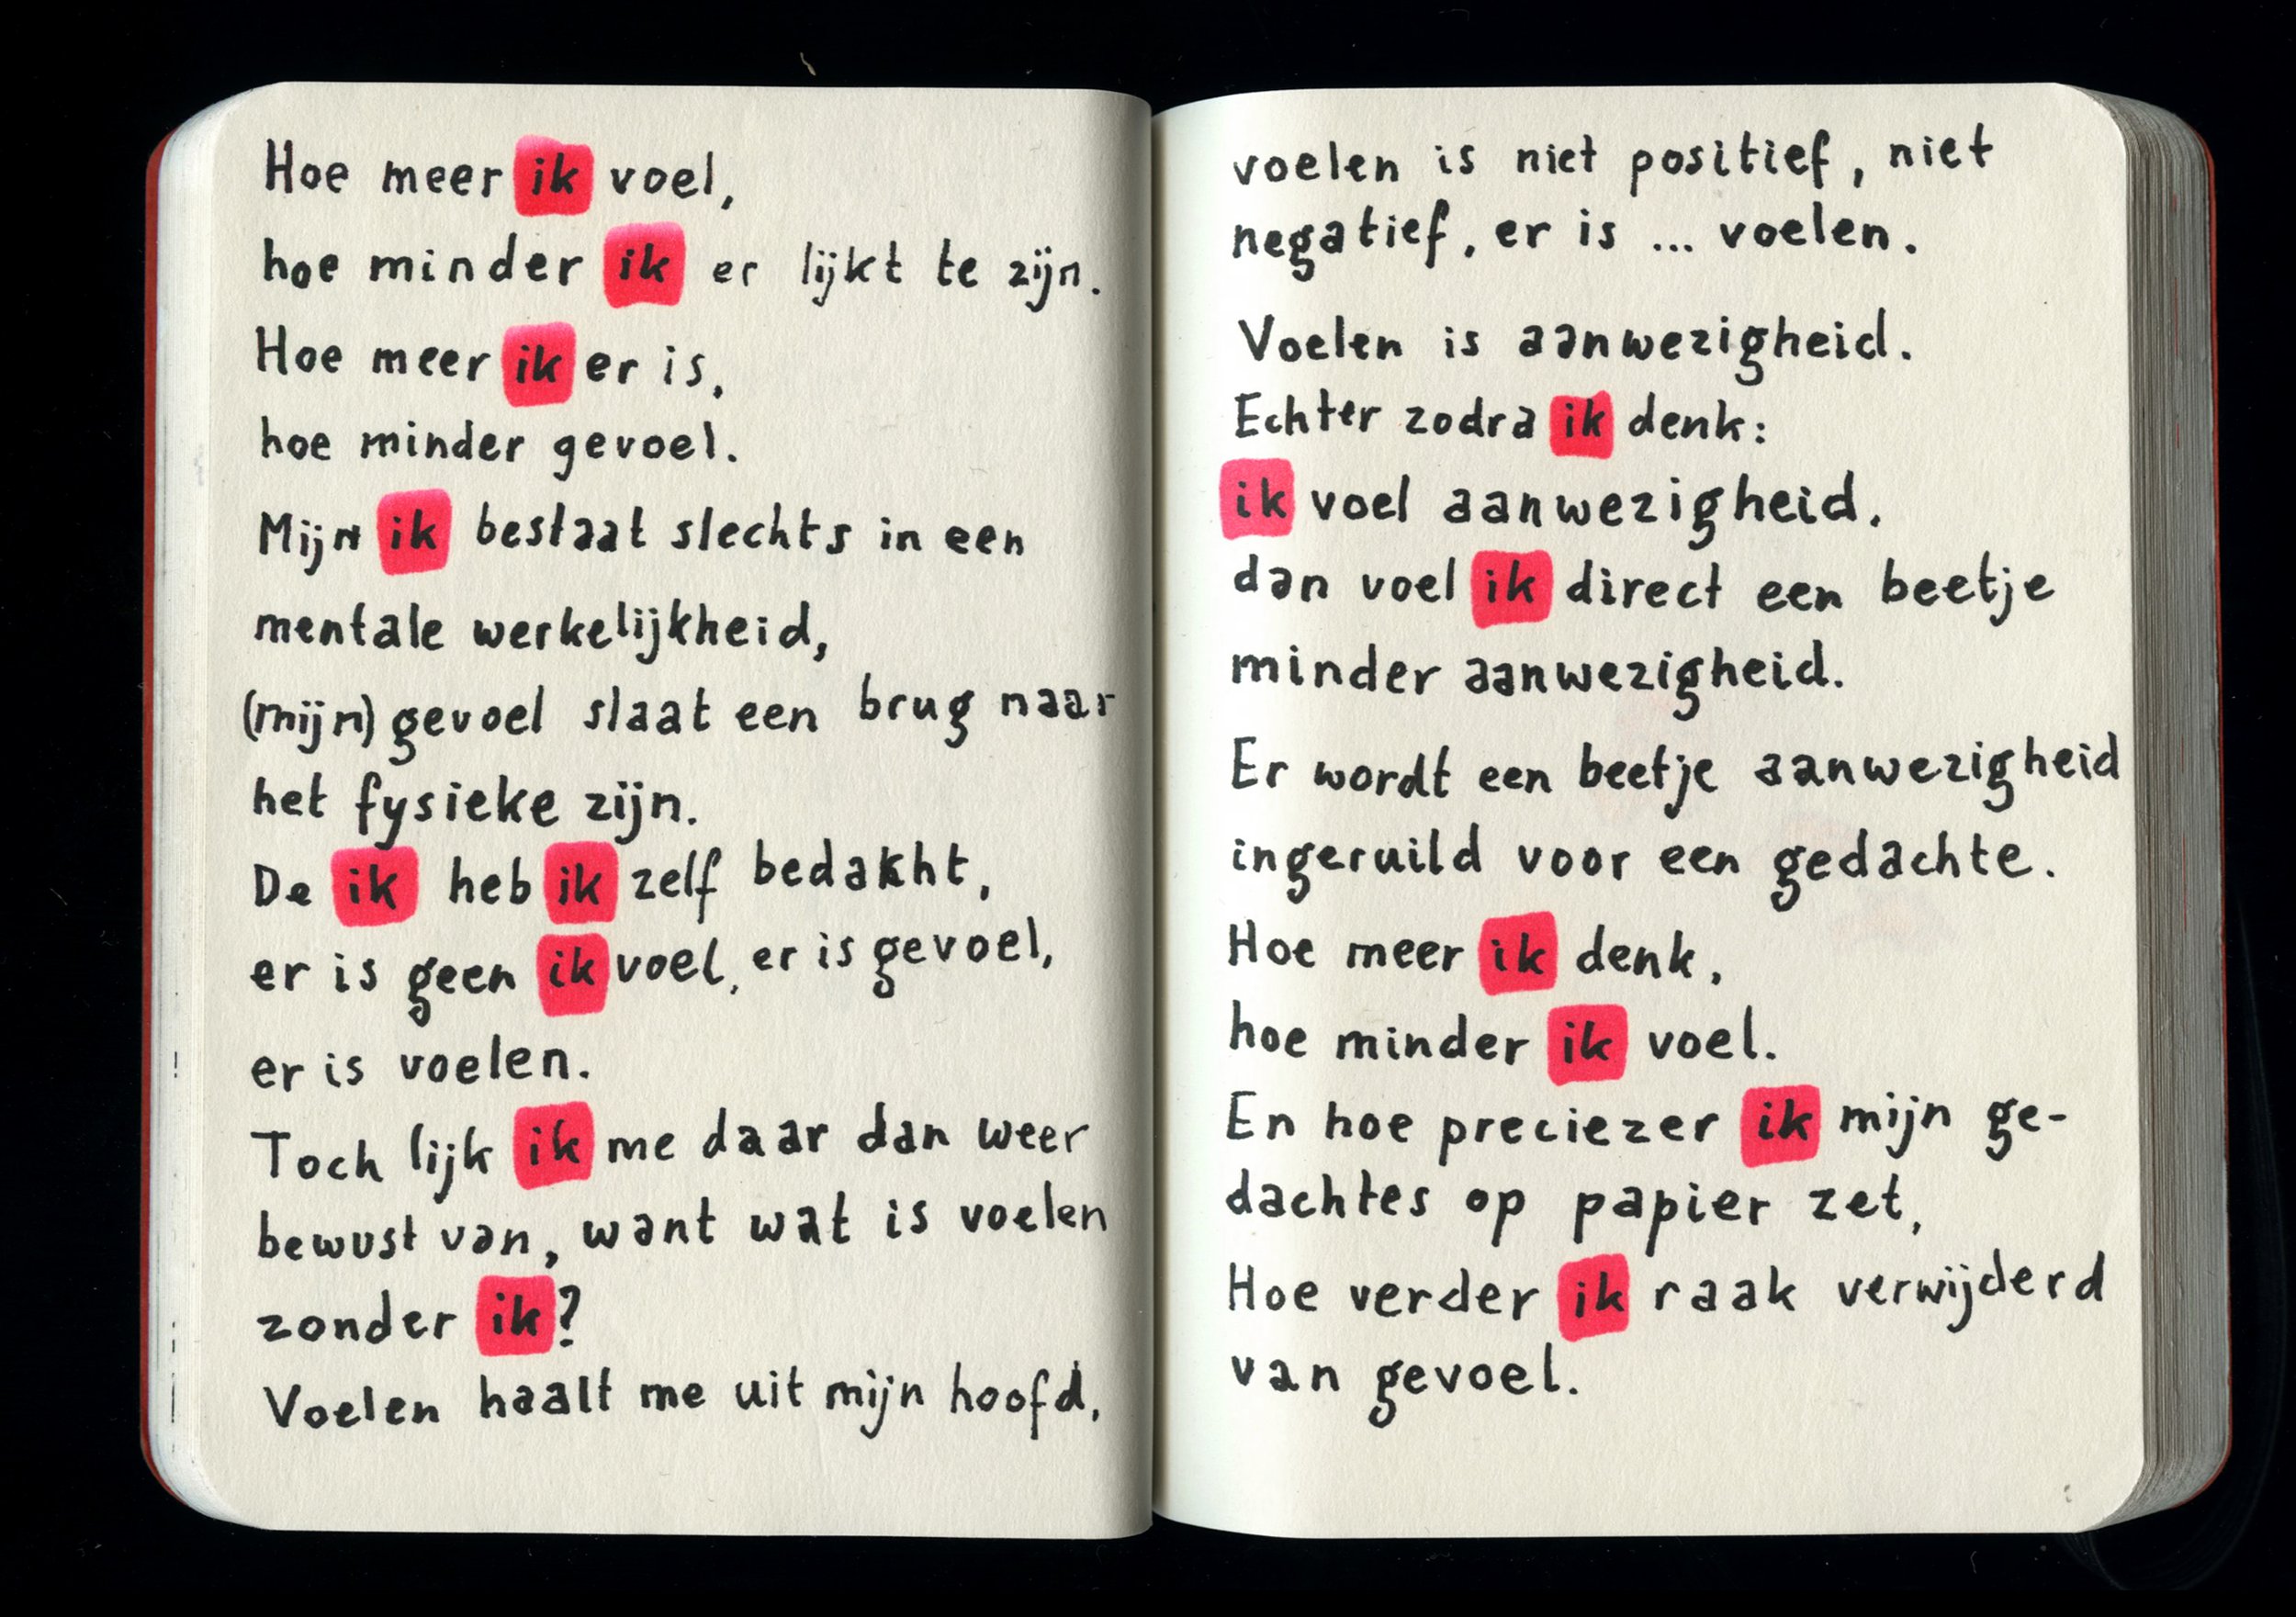 Hoe meer ik voel,
hoe minder ik er lijkt te zijn.
Hoe meer ik er is,
hoe minder gevoel.
Mijn ik bestaat slechts in een
mentale werkelijkheid,
(mijn) gevoel slaat een brug naar
het fysieke zijn.
De ik heb ik zelf bedakht,
er is geen ik voel, er is gevoel,
er is voelen.
Toch lijk ik me daar dan weer
bewust van, want wat is voelen
zonder ik?
Voelen haalt me uit mijn hoofd,
voelen is niet positief, niet
negatief, er is ... voelen.
Voelen is aanwezigheid.
Echter zodra ik denk:
ik voel aanwezigheid,
dan voel ik direct een beetje
minder aanwezigheid.
Er wordt een beetje aanwezigheid
ingeruild voor een gedachte.
Hoe meer ik denk,
hoe minder ik voel.
En hoe preciezer ik mijn ge-
dachtes op papier zet,
Hoe verder ik raak verwijderd
van gevoel.